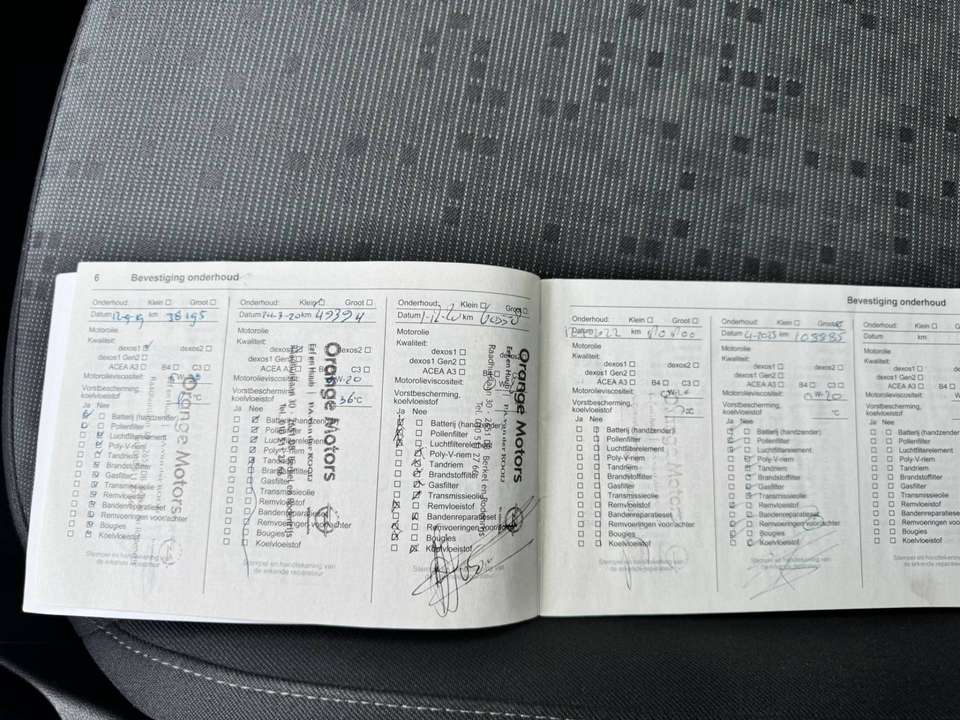 6 Bevestiging onderhoud
Onderhoud: Klein □ Groot □
Datum km 38195
Motorolie
Kwaliteit:
dexos1 dexos2 □
dexos1 Gen2 □
ACEA A3 □ B4 □ C3 □
Motorolieviscositeit:
Vorstbescherming,
koelvloeistof °C
Ja Nee
Batterij (handzender)
Pollenfilter
Luchtfilterelement
Poly-V-riem
Tandriem
Brandstoffilter
Gasfilter
Transmissieolie
Remvloeistof
Bandenreparatieset
Remvoeringen voor/achter
Bougies
Koelvloeistof
Stempel en handtekening van
de erkende reparateur
Orange Motors
Onderhoud: Klein Groot □
Datum km 49394
Motorolie
Kwaliteit:
dexos2 □
C3 □
W-20
Vorstbescherming,
koelvloeistof 36°C
Ja Nee
Batterij (handzender)
Pollenfilter
Luchtfilterelement
Poly-V-riem
Tandriem
Brandstoffilter
Gasfilter
Transmissieolie
Remvloeistof
Bandenreparatieset
Remvoeringen voor/achter
Bougies
Koelvloeistof
Stempel en handtekening van
de erkende reparateur
Orange Motors
Onderhoud: Klein Groot □
Datum km
Motorolie
Kwaliteit:
dexos1 □
dexos1 Gen2 □
ACEA A3 □
Motorolieviscositeit:
Vorstbescherming,
koelvloeistof
Ja Nee
Batterij (handzender)
Pollenfilter
Luchtfilterelement
Poly-V-riem
Tandriem
Brandstoffilter
Gasfilter
Transmissieolie
Remvloeistof
Bandenreparatieset
Remvoeringen voor/achter
Bougies
Koelvloeistof
Orange Motors
Bevestiging onderhoud
Onderhoud: Klein □ Groot □
Datum 2022 km
Motorolie
Kwaliteit:
dexos1 □ dexos2 □
dexos1 Gen2 □
ACEA A3 □ B4 □ C3 □
Motorolieviscositeit:
Vorstbescherming,
koelvloeistof °C
Ja Nee
Batterij (handzender)
Pollenfilter
Luchtfilterelement
Poly-V-riem
Tandriem
Brandstoffilter
Gasfilter
Transmissieolie
Remvloeistof
Bandenreparatieset
Remvoeringen voor/achter
Bougies
Koelvloeistof
Stempel en handtekening van
de erkende reparateur
Onderhoud: Klein □ Groot
Datum 4-2023 km 108885
Motorolie
Kwaliteit:
dexos1 □ dexos2 □
dexos1 Gen2 □
ACEA A3 □ B4 □ C3 □
Motorolieviscositeit: 0W-20
Vorstbescherming,
koelvloeistof °C
Ja Nee
Batterij (handzender)
Pollenfilter
Luchtfilterelement
Poly-V-riem
Tandriem
Brandstoffilter
Gasfilter
Transmissieolie
Remvloeistof
Bandenreparatieset
Remvoeringen voor/achter
Bougies
Koelvloeistof
Stempel en handtekening van
de erkende reparateur
Onderhoud: Klein □
Datum km
Motorolie
Kwaliteit:
dexos1 □
dexos1 Gen2 □
ACEA A3 □
Motorolieviscositeit:
Vorstbescherming,
koelvloeistof
Ja Nee
Batterij (handzender)
Pollenfilter
Luchtfilterelement
Poly-V-riem
Tandriem
Brandstoffilter
Gasfilter
Transmissieolie
Remvloeistof
Bandenreparatieset
Bougies
Koelvloeistof